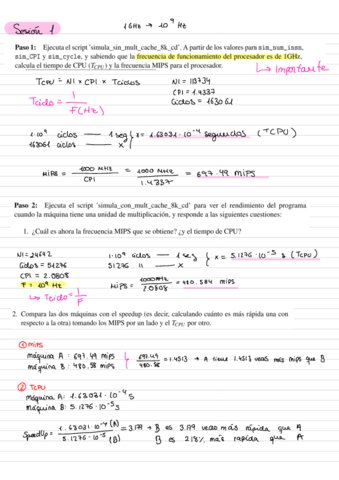 Sesión 1
1GHz → 10⁹ Hz
Paso 1: Ejecuta el script 'simula_sin_mult_cache_8k_cd'. A partir de los valores para sim_num_insn,
sim_CPI y sim_cycle, y sabiendo que la frecuencia de funcionamiento del procesador es de 1GHz,
calcula el tiempo de CPU (TCPU) y la frecuencia MIPS para el procesador.
↳ Importante
TCPU = NI × CPI × Tciclos
NI = 113734
CPI = 1.4337
Ciclos = 163061
Tciclo = 1 / F(Hz)
1·10⁹ ciclos — 1 seg
163061 ciclos — x
x = 1.63031·10⁻⁴ segundos (TCPU)
MIPS = 1000 MHz / CPI = 1000 MHz / 1.4337 = 697.49 MIPS
Paso 2: Ejecuta el script 'simula_con_mult_cache_8k_cd' para ver el rendimiento del programa
cuando la máquina tiene una unidad de multiplicación, y responde a las siguientes cuestiones:
1. ¿Cuál es ahora la frecuencia MIPS que se obtiene? ¿y el tiempo de CPU?
NI = 24642
Ciclos = 51276
CPI = 2.0808
F = 10⁹ Hz
↳ Tciclo = 1/F
1·10⁹ ciclos — 1 seg
51276 " — x
x = 5.1276·10⁻⁵ s (TCPU)
MIPS = 1000MHz / 2.0808 = 480.584 mips
2. Compara las dos máquinas con el speedup (es decir, calculando cuánto es más rápida una con
respecto a la otra) tomando los MIPS por un lado y el TCPU por otro.
① MIPS
máquina A: 697.49 mips
máquina B: 480.58 mips
697.49 / 480.58 = 1.4513 → A tiene 1.4513 veces más mips que B
② TCPU
máquina A: 1.63031·10⁻⁴ s
máquina B: 5.1276·10⁻⁵ s
SpeedUp = 1.63031·10⁻⁴ (A) / 5.1276·10⁻⁵ (B) = 3.179 → B es 3.179 veces más rápida que A
B es 218% más rápida que A